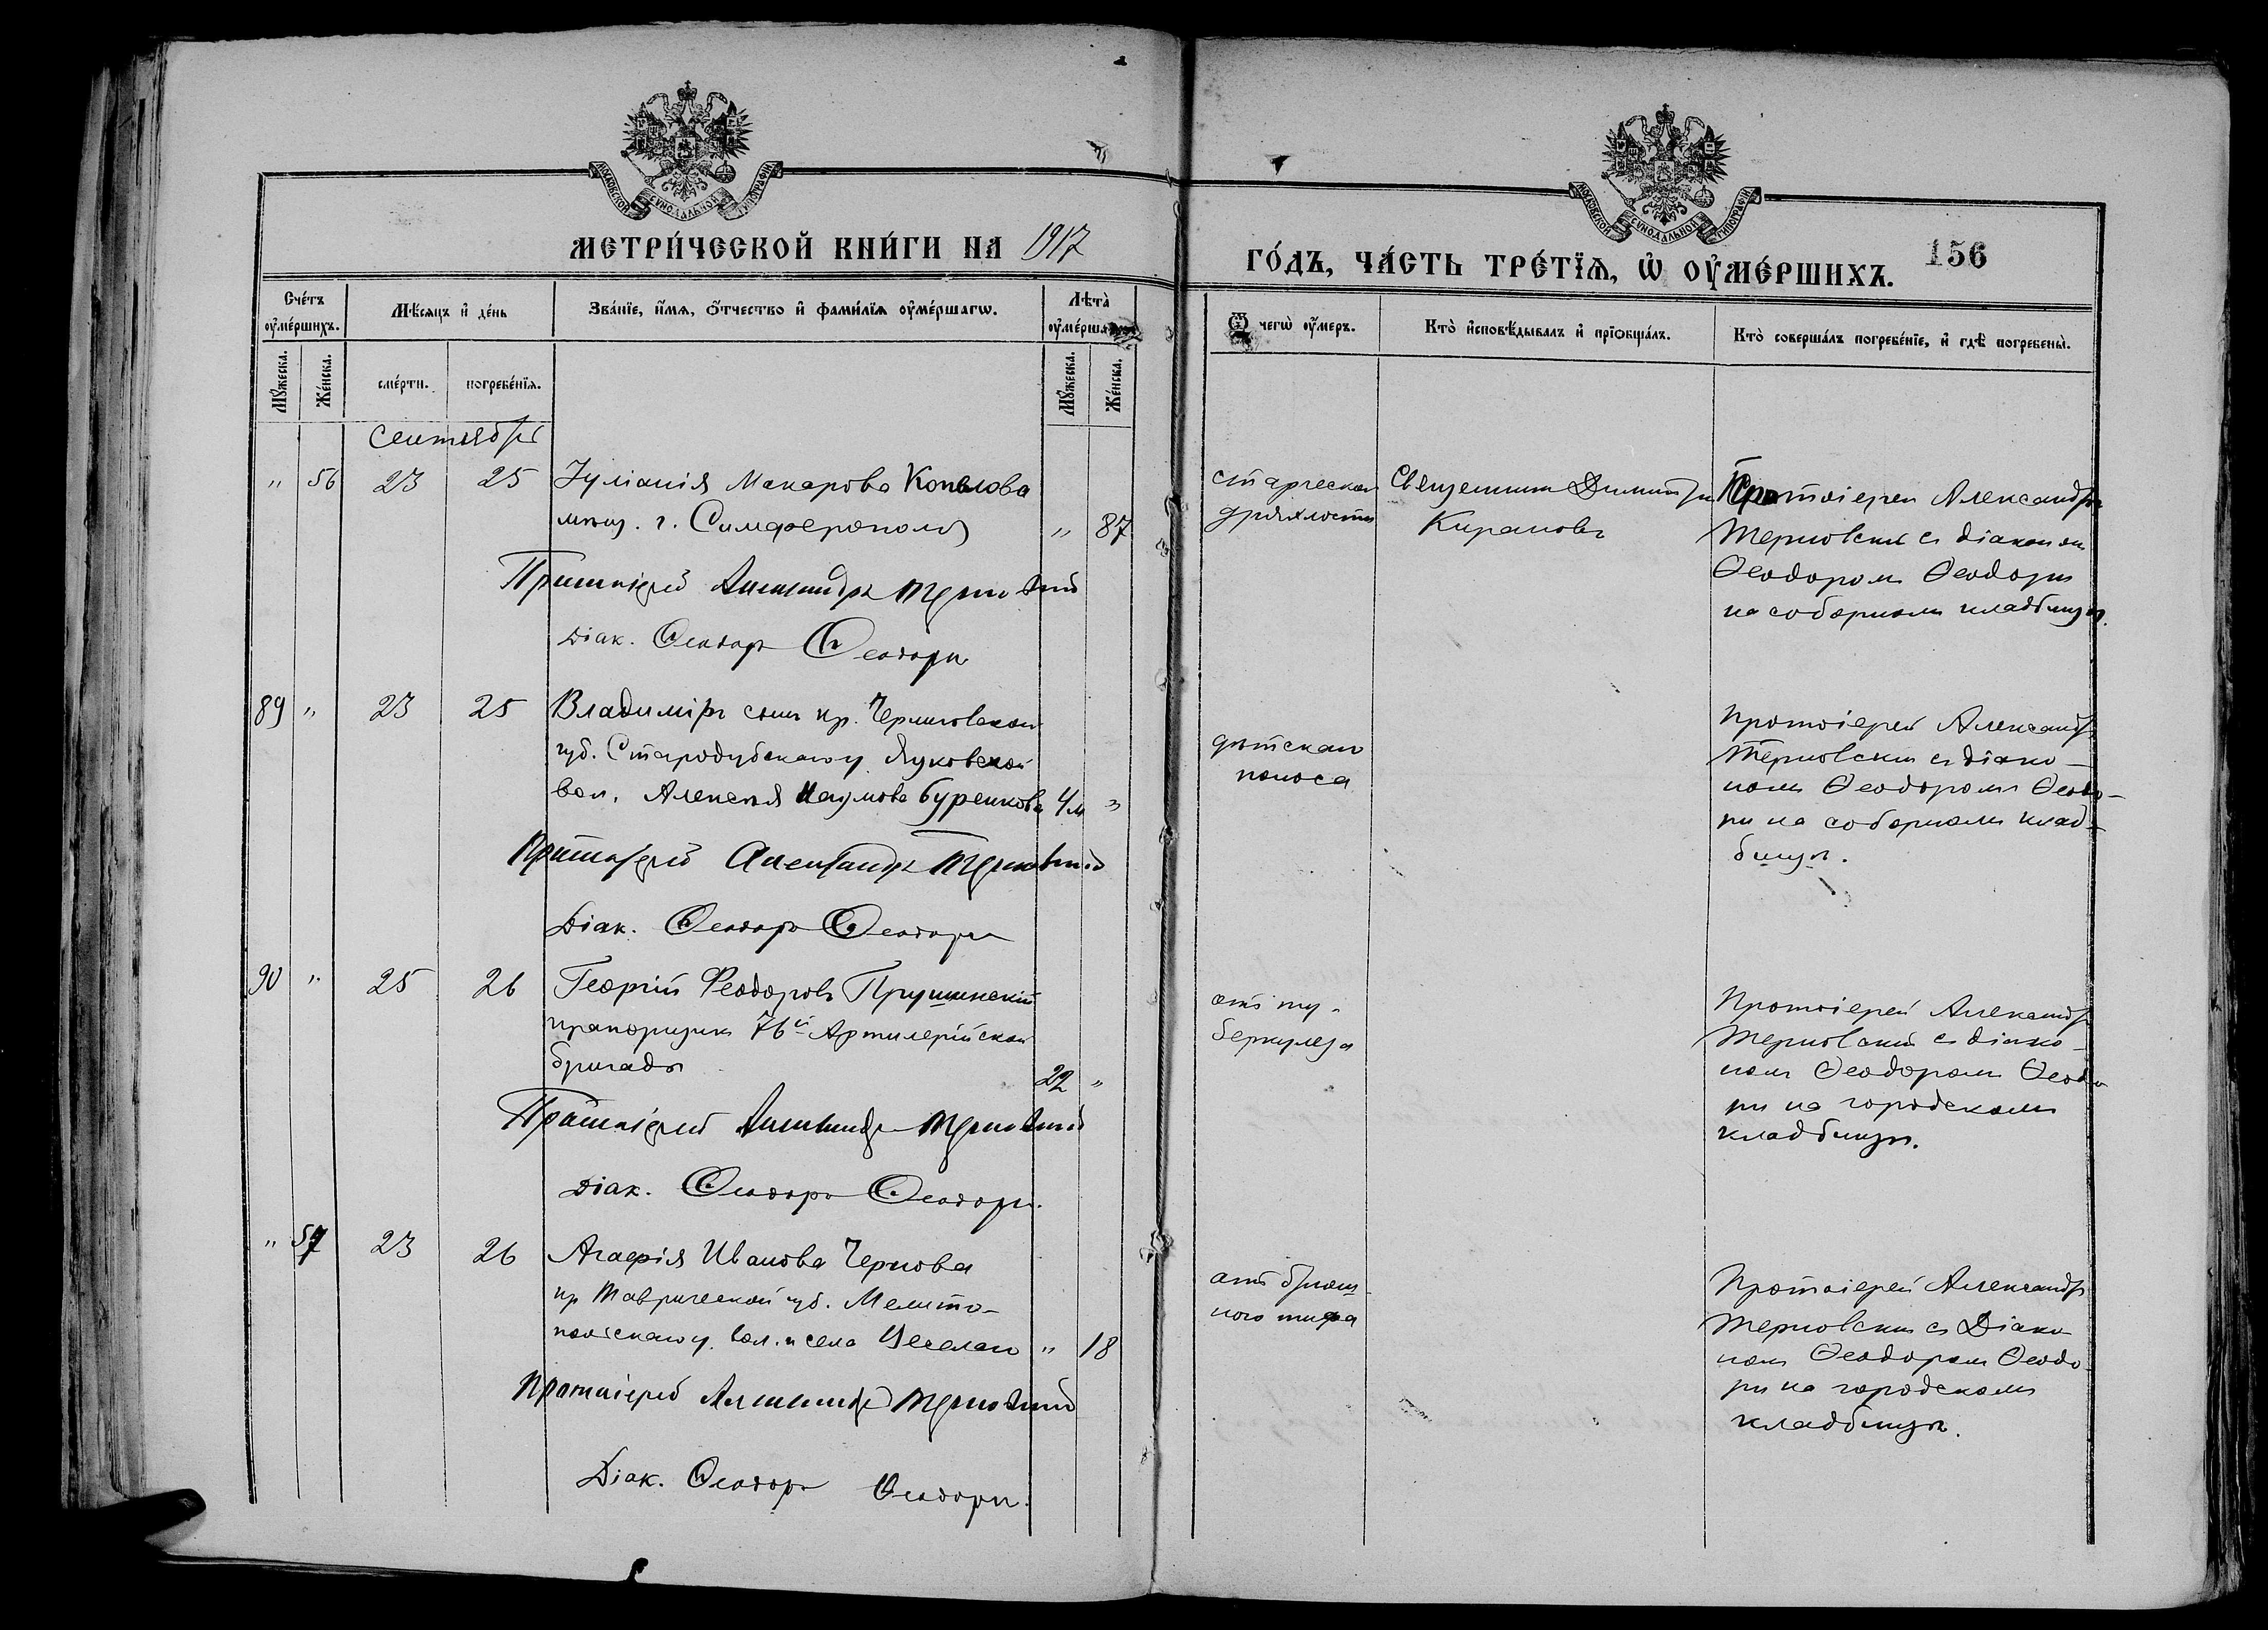 МОСКОВСКОЙ СУНОДАЛЬНОЙ ТИПОГРАФІИ
МОСКОВСКОЙ СУНОДАЛЬНОЙ ТИПОГРАФІИ
МЕТРИ́ЧЕСКОЙ КНИ́ГИ НА 1917
ГО́ДЪ, ЧА́СТЬ ТРЕ́ТЇѦ, Ѡ ОУ҆МЕ́РШИХЪ.
156
Сче́тъ оу҆ме́ршихъ.
Мѣ́сяцъ и҆ де́нь
Зва́нїе, и҆́мѧ, ѻ҆́тчество и҆ фами́лїѧ оу҆ме́ршагѡ.
Лѣ́та̀ оу҆ме́рша
Ѿ чегѡ̀ оу҆́меръ.
Кто̀ и҆сповѣ́дывалъ и҆ прїѡбща́лъ.
Кто̀ соверша́лъ погребе́нїе, и҆ гдѣ̀ погребены̀.
Мꙋ́жеска.
Же́нска.
сме́рти.
погребе́нїѧ.
Мꙋ́жеска.
Же́нска.
Сентябрь
" 56 23 25 Іуліанія Макарова Копылова
мѣщ. г. Симферополя " 87
Протоіерей Александръ Терновскій
Діак. Ѳеодоръ Ѳеодори
старческой
дряхлости
Священникъ Димитрій
Кирановъ
Протоіерей Александръ
Терновскій съ діакономъ
Ѳеодоромъ Ѳеодори
на соборномъ кладбищѣ.
89 " 23 25 Владиміръ сынъ кр. Черниговской
губ. Стародубскаго у. Луковской
вол. Алексѣя Наумова Буренкова 4 м "
Протоіерей Александръ Терновскій
Діак. Ѳеодоръ Ѳеодори
дѣтскаго
поноса
Протоіерей Александръ
Терновскій съ діако-
номъ Ѳеодоромъ Ѳеодо-
ри на соборномъ клад-
бищѣ.
90 " 25 26 Георгій Феодоровъ
прапорщикъ 76й Артилерійской
бригады 22 "
Протоіерей Александръ Терновскій
Діак. Ѳеодоръ Ѳеодори.
отъ ту-
беркулеза
Протоіерей Александръ
Терновскій съ діако-
номъ Ѳеодоромъ Ѳеодо
ри на городскомъ
кладбищѣ.
" 57 23 26 Агафія Иванова Чернова
кр Таврической губ. Мелито-
польскаго у. вол. и села Веселаго " 18
Протоіерей Александръ Терновскій
Діак. Ѳеодоръ Ѳеодори.
отъ брюш-
ного тифа
Протоіерей Александръ
Терновскій съ Діако-
номъ Ѳеодоромъ Ѳеодо-
ри на городскомъ
кладбищѣ.